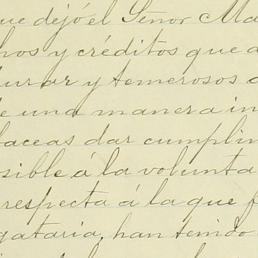 ue dejó el Señor Ma
hos y créditos que a
urar y temerosos
de una manera in
baceas dar cumplim
sible á la volunta
respecta á la que f
gataria, han tenido